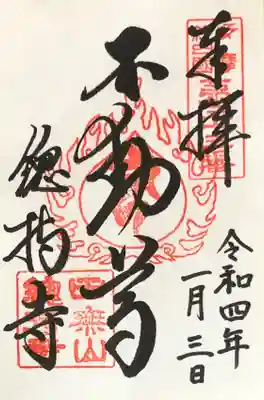 奉拝
不動尊
總持寺
令和四年
一月三日